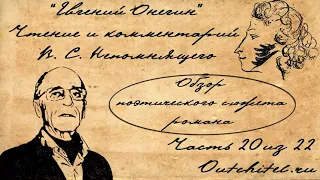 "Евгений Онегин"
Чтение и комментарий
В. С. Непомнящего
Обзор
поэтического сюжета
романа
Часть 20 из 22
Outchitel.ru